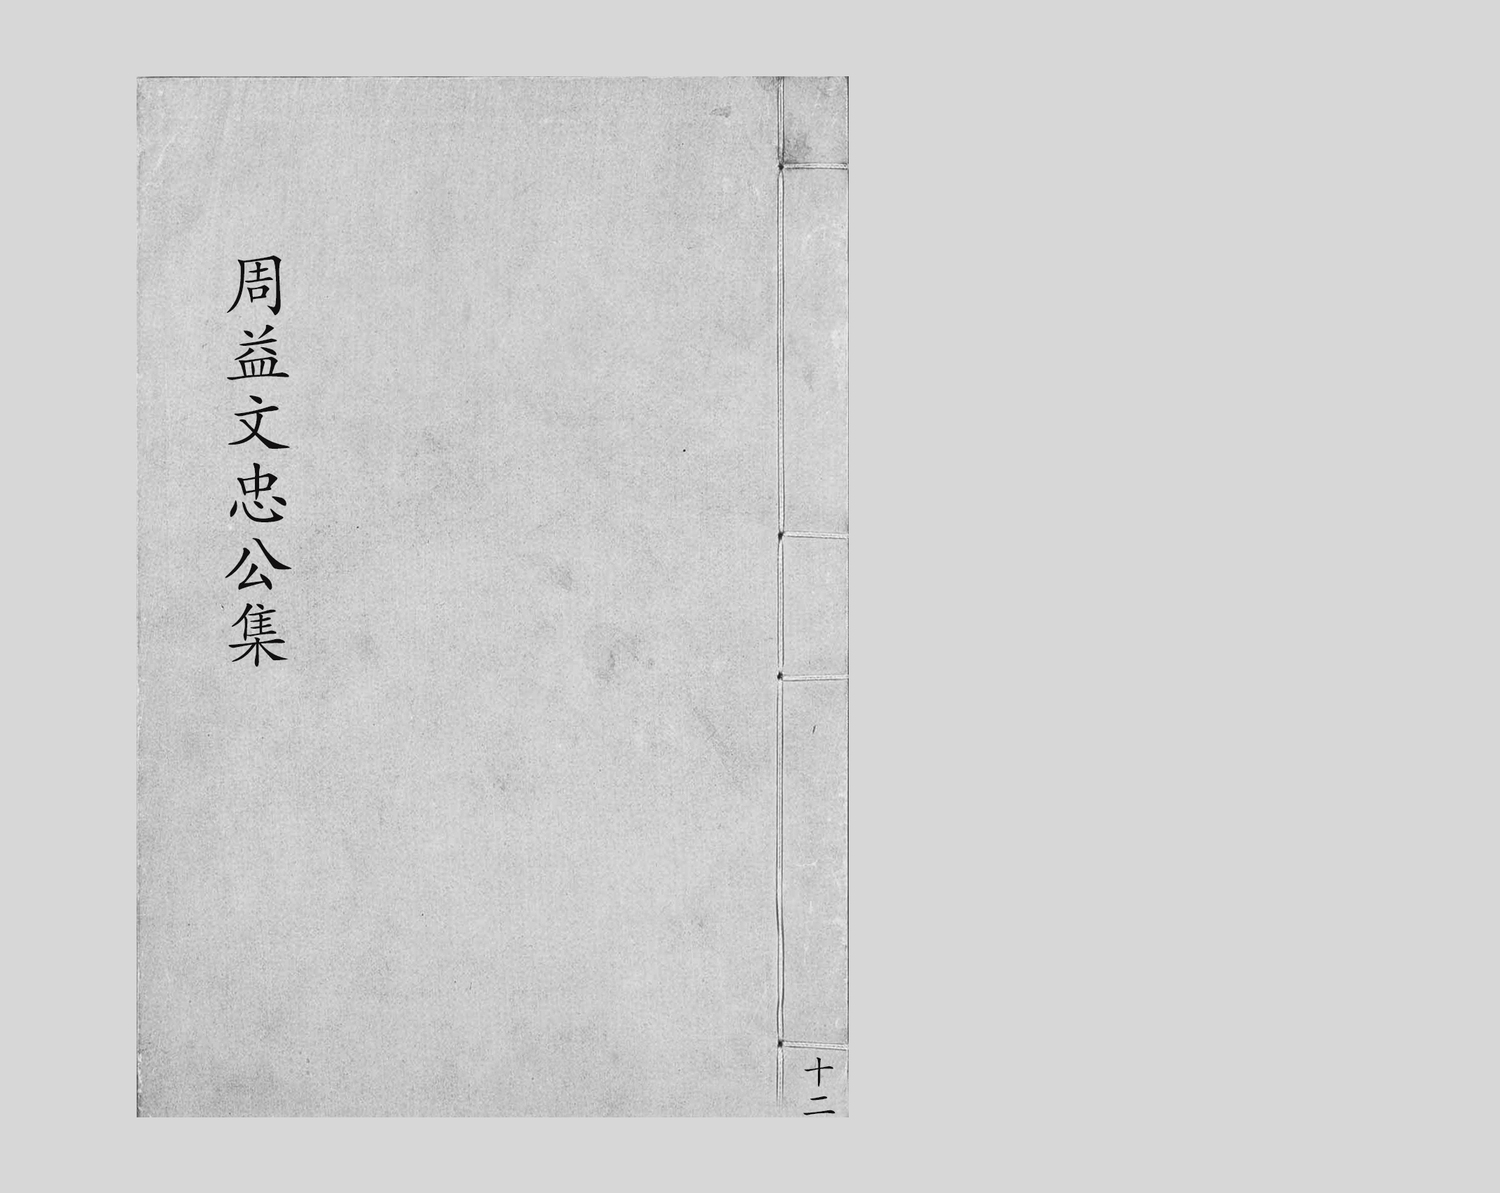 周益文忠公集
十二